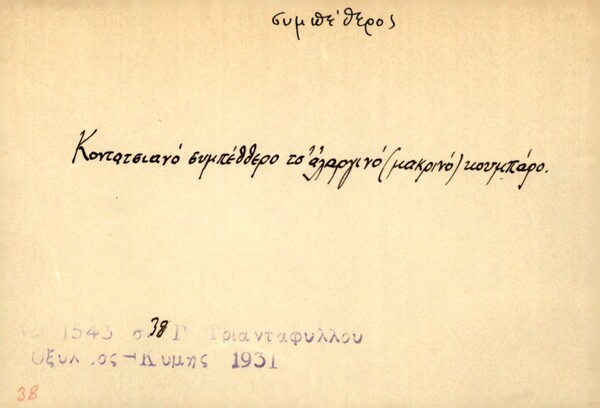 συμπέθερος
Κοντατσιανό συμπέθθερο τσ' ἀλαργινό (μακρινό) κουμπάρο.
1543 σ 38 Γ Τριανταφυλλου
-Κυμης 1931
38